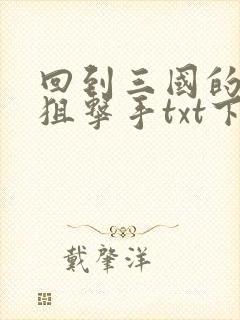 回到三國的
狙擊手txt下
戴肇洋